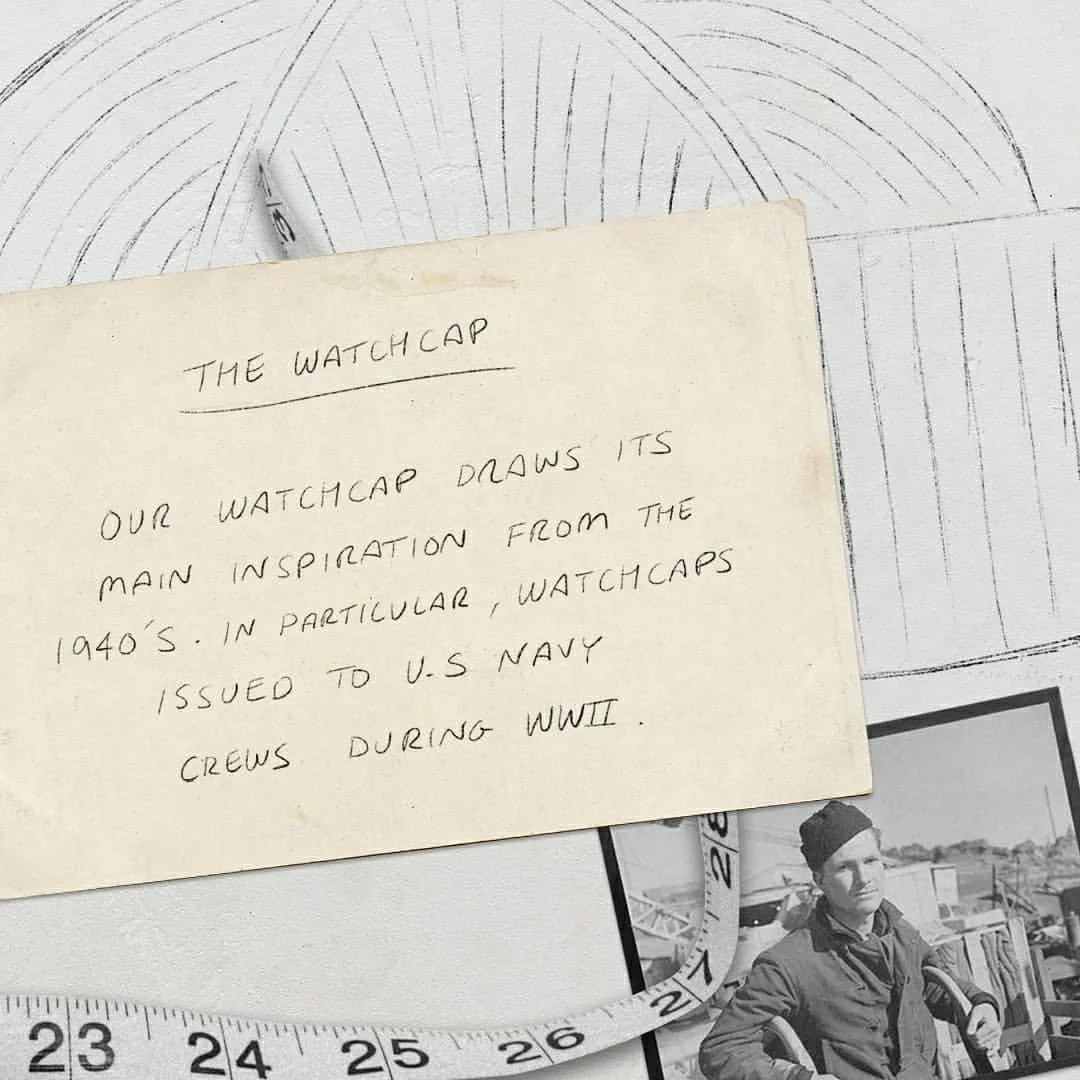 THE WATCHCAP
OUR WATCHCAP DRAWS ITS
MAIN INSPIRATION FROM THE
1940'S. IN PARTICULAR, WATCHCAPS
ISSUED TO U.S NAVY
CREWS DURING WWII.
28
27
23 24 25 26